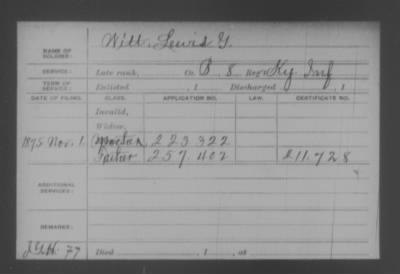 NAME OF SOLDIER: Witt, Lewis G.
SERVICE: Late rank, Co. B, 8 Reg't Ky. Inf
TERM OF SERVICE: Enlisted , 1 Discharged , 1
DATE OF FILING. CLASS. APPLICATION NO. LAW. CERTIFICATE NO.
Invalid,
Widow,
1875 Nov. 1 223 322
Father 257.402 211.728
ADDITIONAL SERVICES:
REMARKS:
77 Died , 1 , at